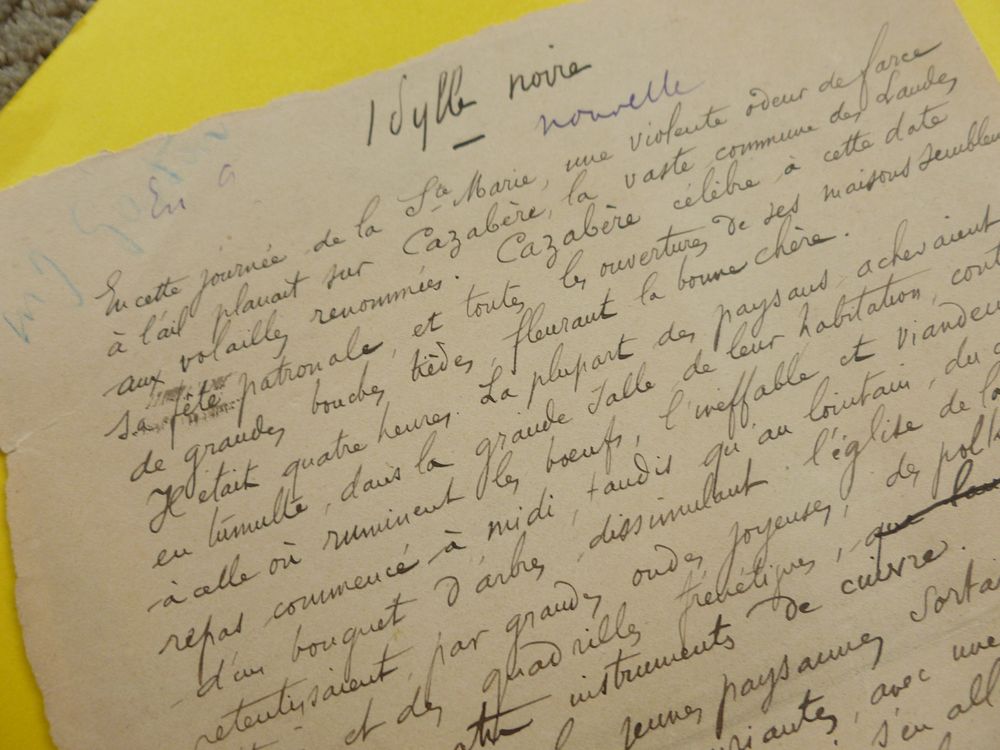 Idylle noire
nouvelle
En a
En cette journée de la Ste Marie, une violente odeur de farce
à l'ail planait sur Cazabère, la vaste commune des Landes
aux volailles renommées. Cazabère célèbre à cette date
sa fête patronale, et toutes les ouvertures de ses maisons semblen
de grandes bouches tièdes, fleurant la bonne chère.
Il était quatre heures. La plupart des paysans achevaient
en tumulte, dans la grande salle de leur habitation, cont
à celle où ruminent les boeufs, l'ineffable et viandeu
repas commencé à midi, tandis qu'au lointain, du
d'un bouquet d'arbres dissimulant l'église de la
retentissaient, par grandes ondes joyeuses, des polk
et des quadrilles frénétiques, que
instruments de cuivre.
jeunes paysannes sorta
riantes, avec une
s'en all